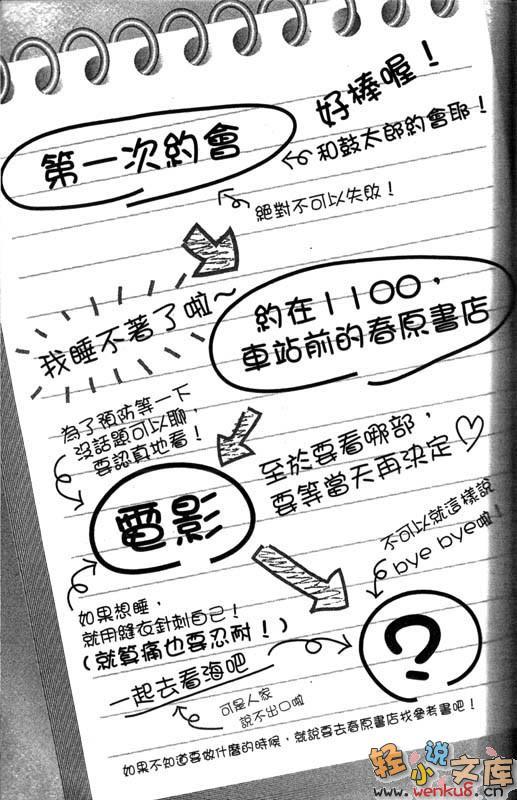 好棒喔！
第一次約會
和鼓太郎約會耶！
絕對不可以失敗！
我睡不著了啦～
約在1100，
車站前的春原書店
為了預防等一下
沒話題可以聊，
要認真地看！
至於要看哪部，
要等當天再決定♡
電影
不可以就這樣說
bye bye啦！
如果想睡，
就用縫衣針刺自己！
(就算痛也要忍耐！)
?
一起去看海吧
可是人家
說不出口啦
如果不知道要做什麼的時候，就說要去春原書店找參考書吧！
轻小说文库
www.wenku8.cn